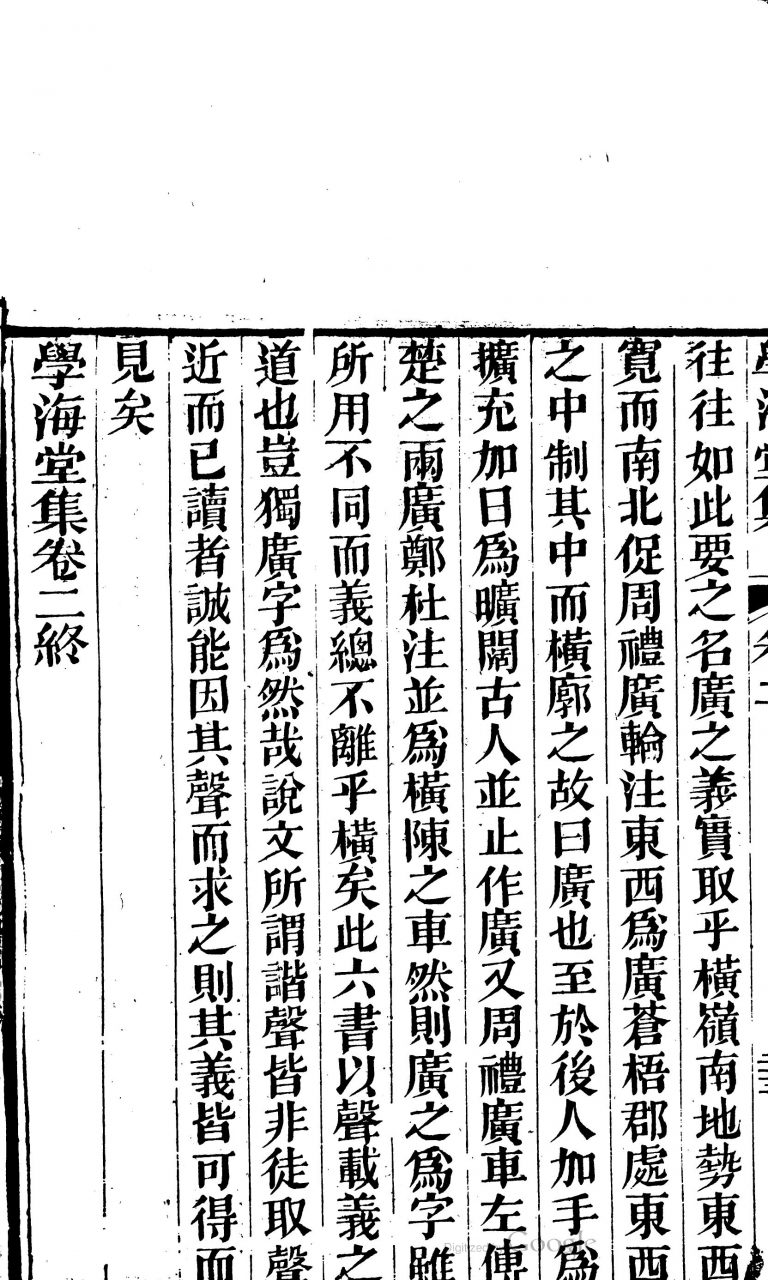 往往如此要之名廣之義實取乎橫嶺南地勢東西
寬而南北促周禮廣輪注東西爲廣蒼梧郡處東西
之中制其中而橫廓之故曰廣也至於後人加手爲
擴充加日爲曠闊古人並止作廣又周禮廣車左傳
楚之兩廣鄭杜注並爲橫陳之車然則廣之爲字雖
所用不同而義總不離乎橫矣此六書以聲載義之
道也豈獨廣字爲然哉說文所謂諧聲皆非徒取聲
近而已讀者誠能因其聲而求之則其義皆可得而
見矣
學海堂集卷二終
Digitized by Google